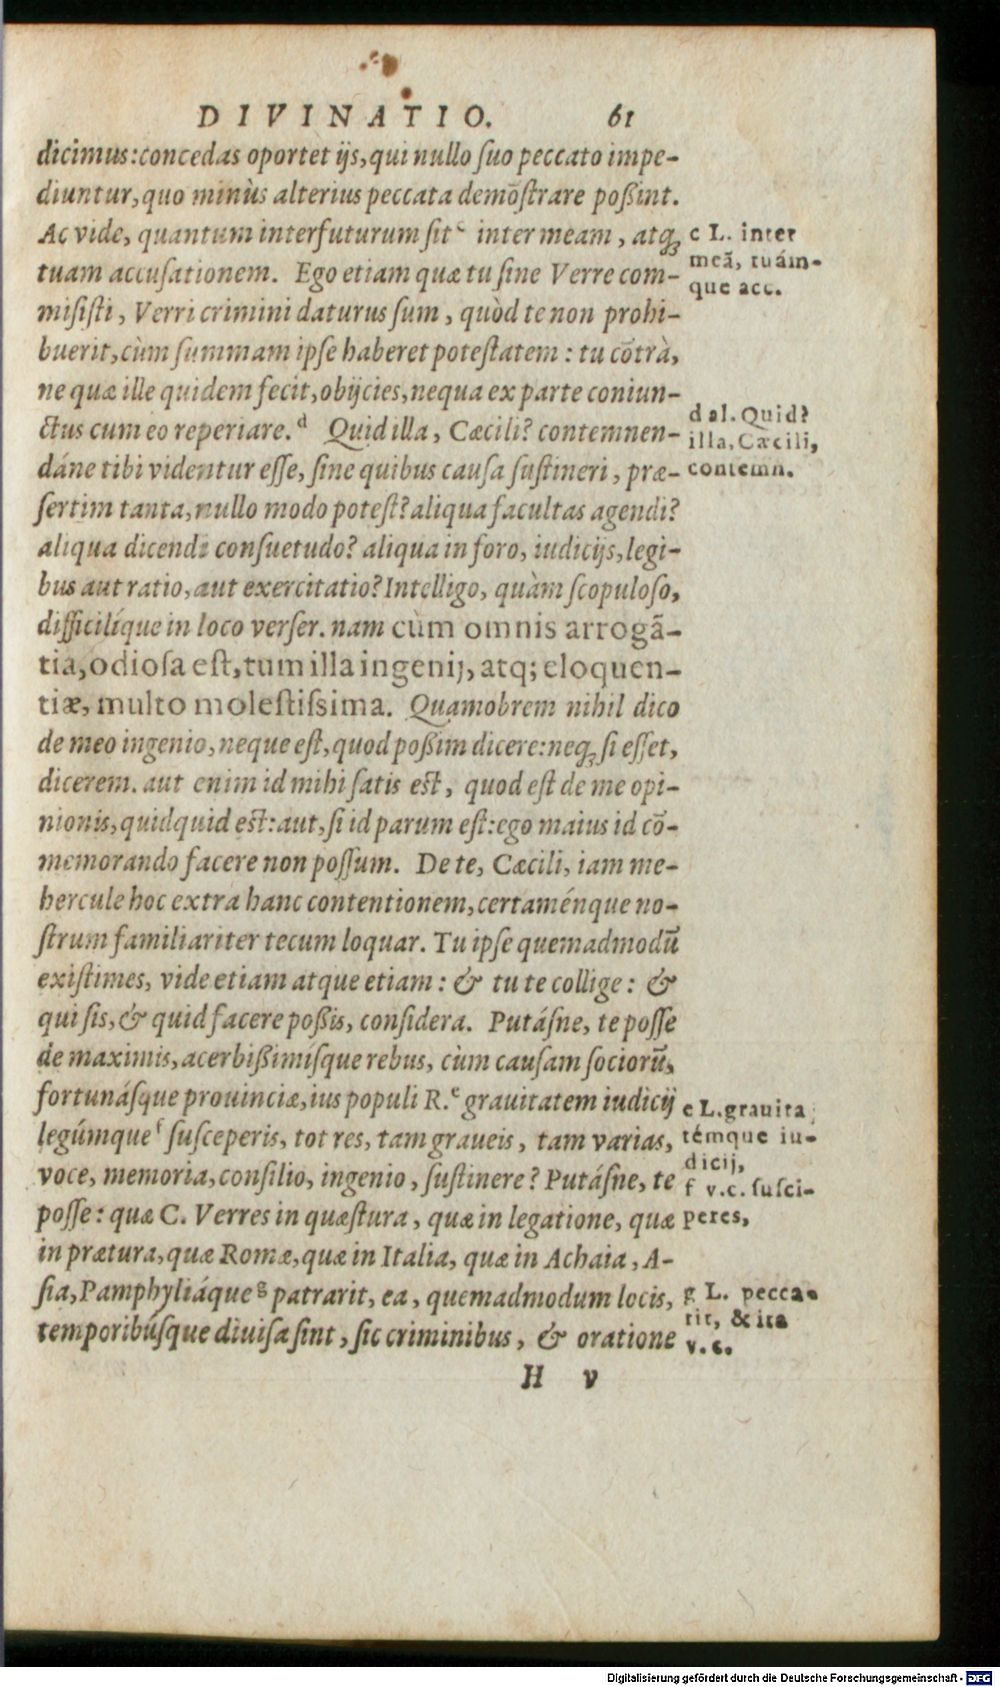 DIVINATIO. 61
dicimus: concedas oportet ijs, qui nullo suo peccato impe-
diuntur, quo minùs alterius peccata demōstrare poßint.
Ac vide, quantum interfuturum sit c inter meam, atq;
tuam accusationem. Ego etiam quæ tu sine Verre com-
misisti, Verri crimini daturus sum, quòd te non prohi-
buerit, cùm summam ipse haberet potestatem: tu cōtrà,
ne quæ ille quidem fecit, obijcies, nequa ex parte coniun-
ctus cum eo reperiare. d Quid illa, Cæcili? contemnen-
dáne tibi videntur esse, sine quibus causa sustineri, præ-
sertim tanta, nullo modo potest? aliqua facultas agendi?
aliqua dicendi consuetudo? aliqua in foro, iudicijs, legi-
bus aut ratio, aut exercitatio? Intelligo, quàm scopuloso,
difficilíque in loco verser. nam cùm omnis arrogā-
tia, odiosa est, tum illa ingenij, atq; eloquen-
tiæ, multo molestissima. Quamobrem nihil dico
de meo ingenio, neque est, quod poßim dicere: neq; si esset,
dicerem. aut enim id mihi satis est, quod est de me opi-
nionis, quidquid est: aut, si id parum est: ego maius id cō-
memorando facere non possum. De te, Cæcili, iam me-
hercule hoc extra hanc contentionem, certaménque no-
strum familiariter tecum loquar. Tu ipse quemadmodū
existimes, vide etiam atque etiam: & tu te collige: &
qui sis, & quid facere poßis, considera. Putásne, te posse
de maximis, acerbißimísque rebus, cùm causam sociorū,
fortunásque prouinciæ, ius populi R. e grauitatem iudicij
legúmque f susceperis, tot res, tam graueis, tam varias,
voce, memoria, consilio, ingenio, sustinere? Putásne, te
posse: quæ C. Verres in quæstura, quæ in legatione, quæ
in prætura, quæ Romæ, quæ in Italia, quæ in Achaia, A-
sia, Pamphyliáque g patrarit, ea, quemadmodum locis,
temporibúsque diuisa sint, sic criminibus, & oratione
H v
c L. inter
meā, tuám-
que acc.
d al. Quid?
illa, Cæcili,
contemn.
e L. grauita
témque iu-
dicij,
f v.c. susci-
peres,
g L. pecca-
rit, & ita
v.c.
Digitalisierung gefördert durch die Deutsche Forschungsgemeinschaft - DFG